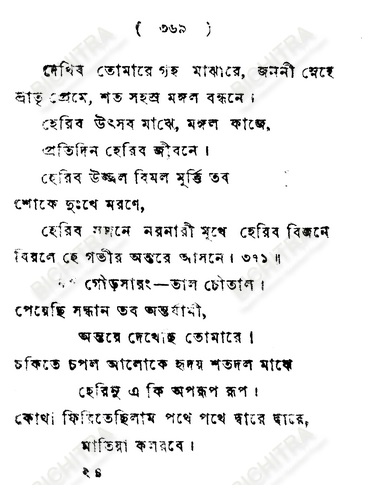 ( ৩৬৯ )
দেখিব তোমারে গৃহ মাঝারে, জননী স্নেহে
ভ্রাতৃ প্রেমে, শত সহস্র মঙ্গল বন্ধনে।
হেরিব উৎসব মাঝে, মঙ্গল কাজে,
প্রতিদিন হেরিব জীবনে।
হেরিব উজ্জ্বল বিমল মূর্ত্তি তব
শোকে দুঃখে মরণে,
হেরিব সজনে নরনারী মুখে হেরিব বিজনে
বিরলে হে গভীর অন্তরে আসনে। ৩৭১॥
গৌড়সারং—তাল চৌতাল।
পেয়েছি সন্ধান তব অন্তর্যামী,
অন্তরে দেখেছি তোমারে।
চকিতে চপল আলোকে হৃদয় শতদল মাঝে
হেরিনু এ কি অপরূপ রূপ।
কোথা ফিরিতেছিলাম পথে পথে দ্বারে দ্বারে,
মাতিয়া কলরবে।
২৪
BICHITRA